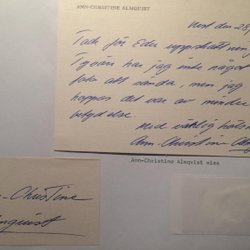 ANN-CHRISTINE ALMQVIST
den 28/
Tack för Eder uppskattning
Tyvärr har jag inte något
foto att sända, men jag
hoppas det var av mindre
betydelse.
Med vänlig häls
Ann-Christine Alm
Ann-Christine Almqvist
n-Christine
lmquist